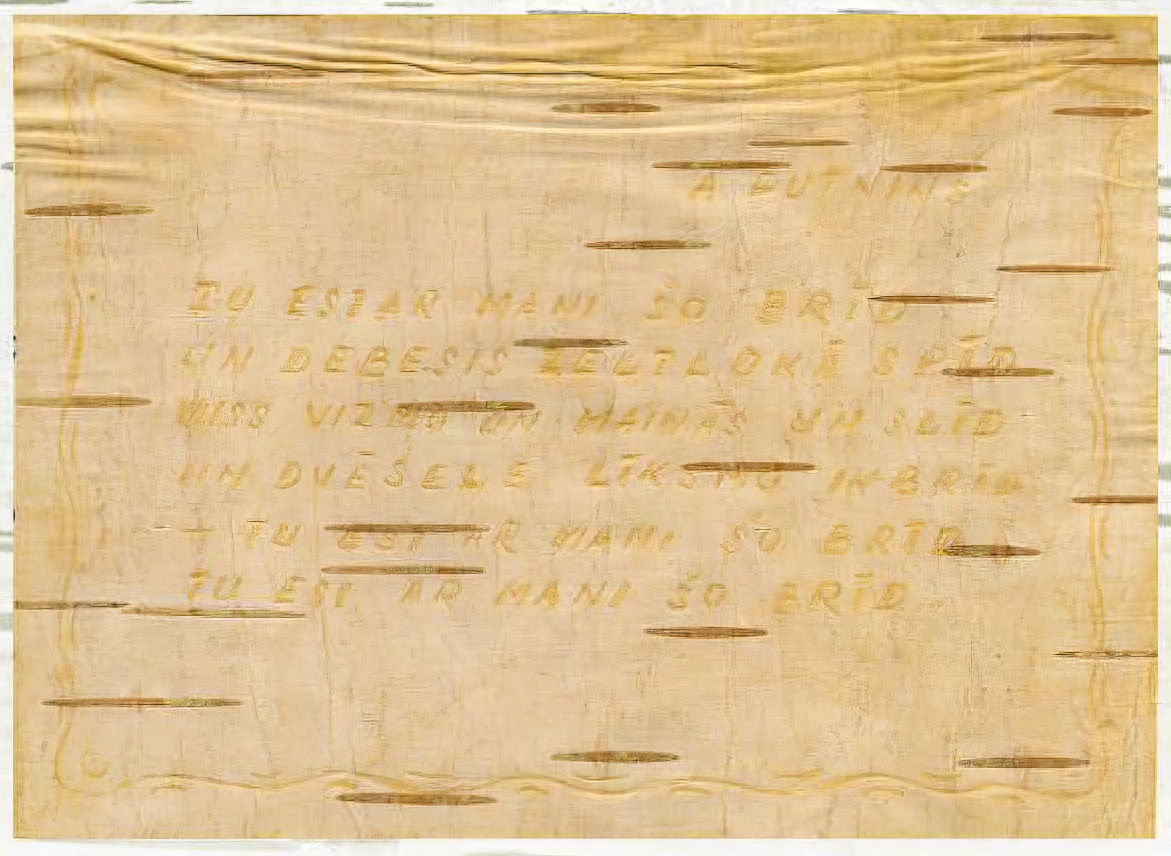 TU ESI AR MANI ŠO BRĪD
UN DEBESIS ZELTLOKĪ SPĪD
VISS VIZ UN MAINĀS UN SLĪD
UN DVĒSELE LĪKSMO IK BRĪD
— TU ESI AR MANI ŠO BRĪD
TU ESI AR MANI ŠO BRĪD